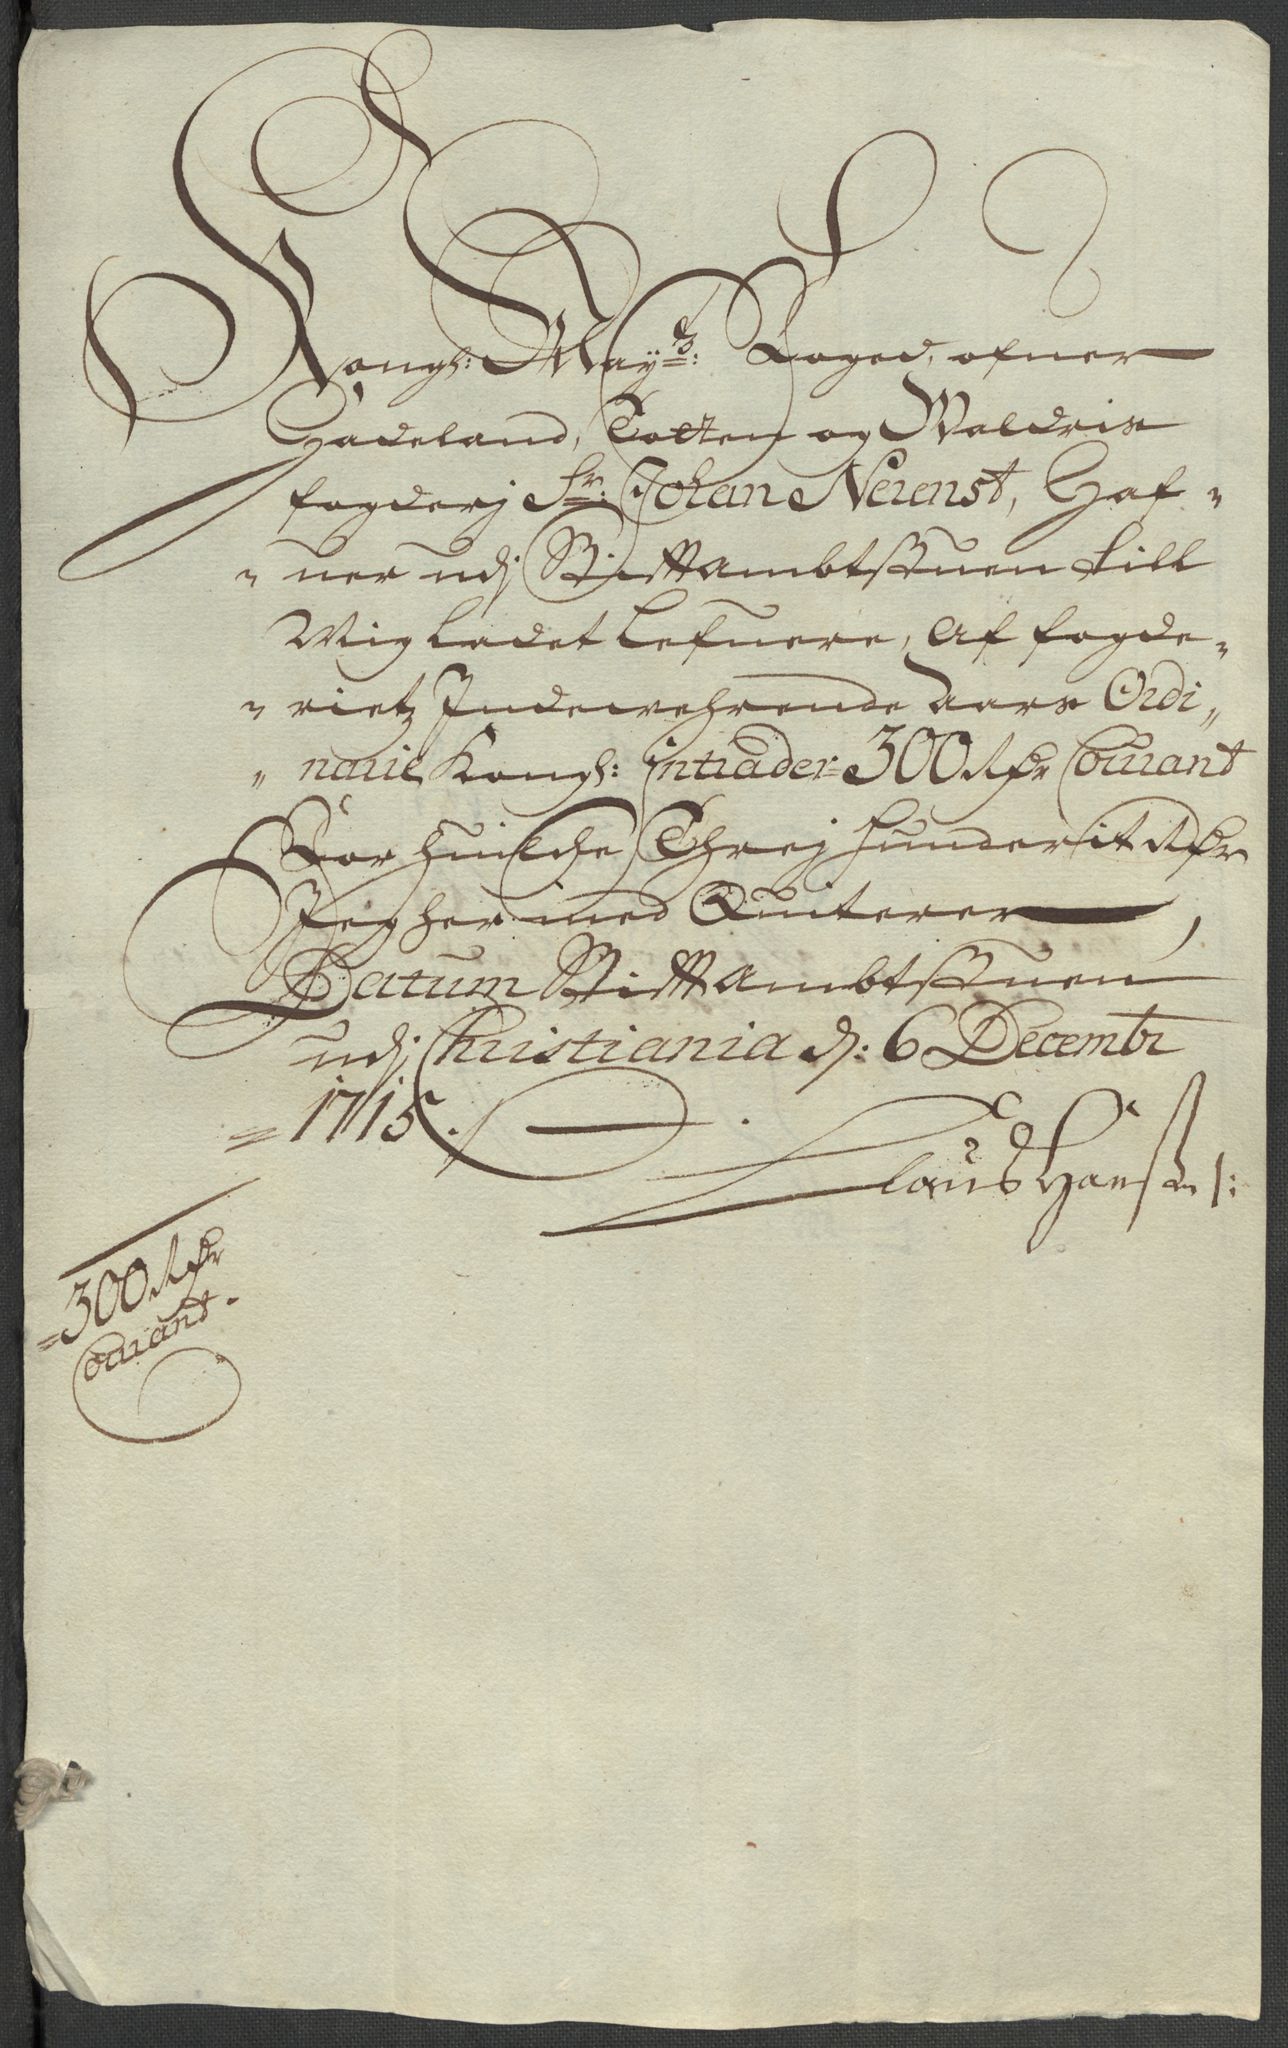 Kongl: May:tz: Foged, ofuer
Hadeland, Totten og Waldris
fogderj Sr: Johan Neuenst, Haf-
- uer udj Stifftambtstuen till
Mig ladet lefuere, Af fogde-
- rietz Indewehrende Aars Ordi-
- narie Kongl: Intrader 300 Rdr Courant
For huilche Threj hunderit Rdr
Jeg her med Quiterer
Datum Stifftambtstuen
udj Christiania d: 6 Decembr
= 1715.
Claus Hansen
= 300 Rdr
Courant.